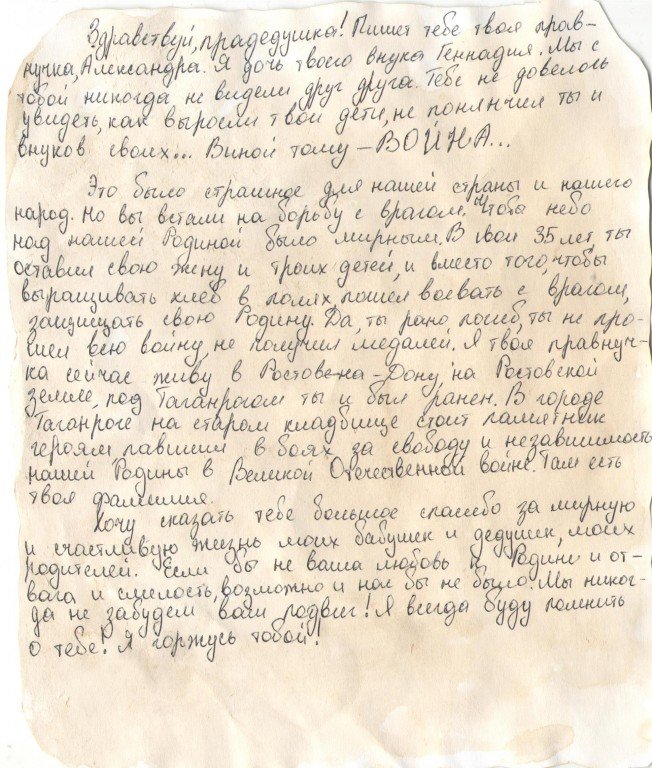 Здравствуй, прадедушка! Пишет тебе твоя прав-
нучка, Александра. Я дочь твоего внука Геннадия. Мы с
тобой никогда не видели друг друга. Тебе не довелось
увидеть, как выросли твои дети, не понянчил ты и
внуков своих... Виной тому – ВОЙНА...
Это было страшное для нашей страны и нашего
народ. Но вы встали на борьбу с врагом. Чтобы небо
над нашей Родиной было мирным. В свои 35 лет, ты
оставил свою жену и троих детей, и вместо того, чтобы
выращивать хлеб в полях, пошел воевать с врагом,
защищать свою Родину. Да, ты рано погиб, ты не про-
шел всю войну, не получил медалей. Я твоя правнуч-
ка сейчас живу в Ростове-на-Дону, на Ростовской
земле, под Таганрогом ты и был ранен. В городе
Таганроге на старом кладбище стоит памятник
героям павшим в боях за свободу и независимость
нашей Родины в Великой Отечественной войне. Там есть
твоя фамилия.
Хочу сказать тебе большое спасибо за мирную
и счастливую жизнь моих бабушек и дедушек, моих
родителей. Если бы не ваша любовь к Родине и от-
вага и смелость, возможно и нас бы не было. Мы никог-
да не забудем ваш подвиг! Я всегда буду помнить
о тебе! Я горжусь тобой!